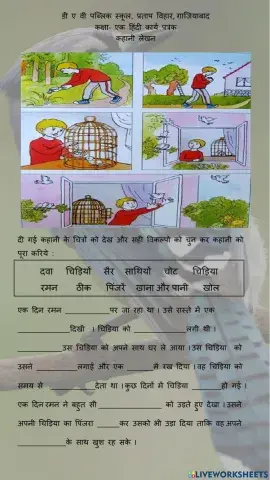 डी ए वी पब्लिक स्कूल, प्रताप विहार, गाजियाबाद
कक्षा- एक हिंदी कार्य पत्रक
कहानी लेखन
दी गई कहानी के चित्रों को देख और सही विकल्पों को चुन कर कहानी को
पूरा करिये :
दवा चिड़ियाँ सैर साथियों चोट चिड़िया
रमन ठीक पिंजरे खाना और पानी खोल
एक दिन रमन ____________पर जा रहा था । उसे रास्ते में एक
____________दिखी । चिड़िया को ____________लगी थी ।
____________उस चिड़िया को अपने साथ घर ले आया ।उस चिड़िया को
उसने __________लगाई और एक ______में रख दिया ।वह चिड़िया को
समय से ____________देता था ।कुछ दिनों में चिड़िया ________हो गई ।
एक दिन रमन ने बहुत सी ____________को उड़ते हुए देखा ।उसने
अपनी चिड़िया का पिंजरा _____कर उसको भी उड़ा दिया ताकि वह अपने
___________के साथ खुश रह सके ।
LIVEWORKSHEETS